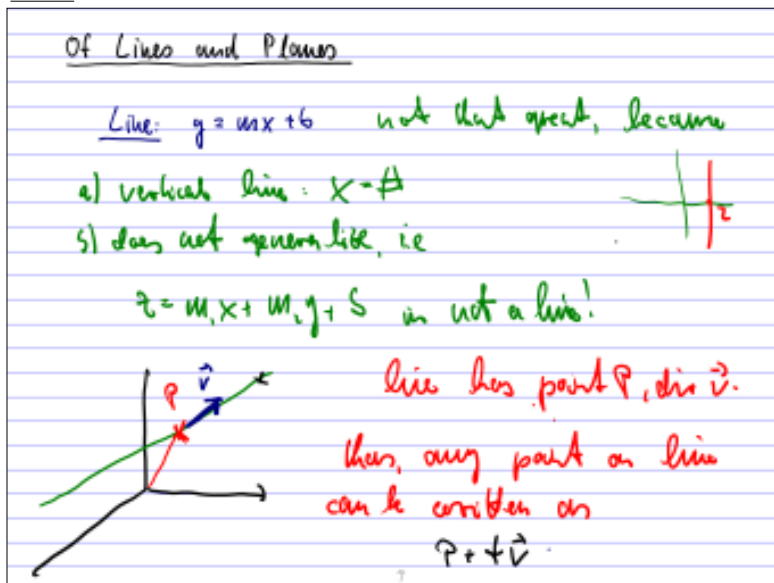 Of Lines and Planes
Line: y = mx + b not that great, because
a) vertical line: x = #
b) does not generalize, ie
2
z = m₁x + m₂y + b is not a line!
P v⃗
line has point P, dir v⃗.
then, any point on line
can be written as
P + t v⃗.